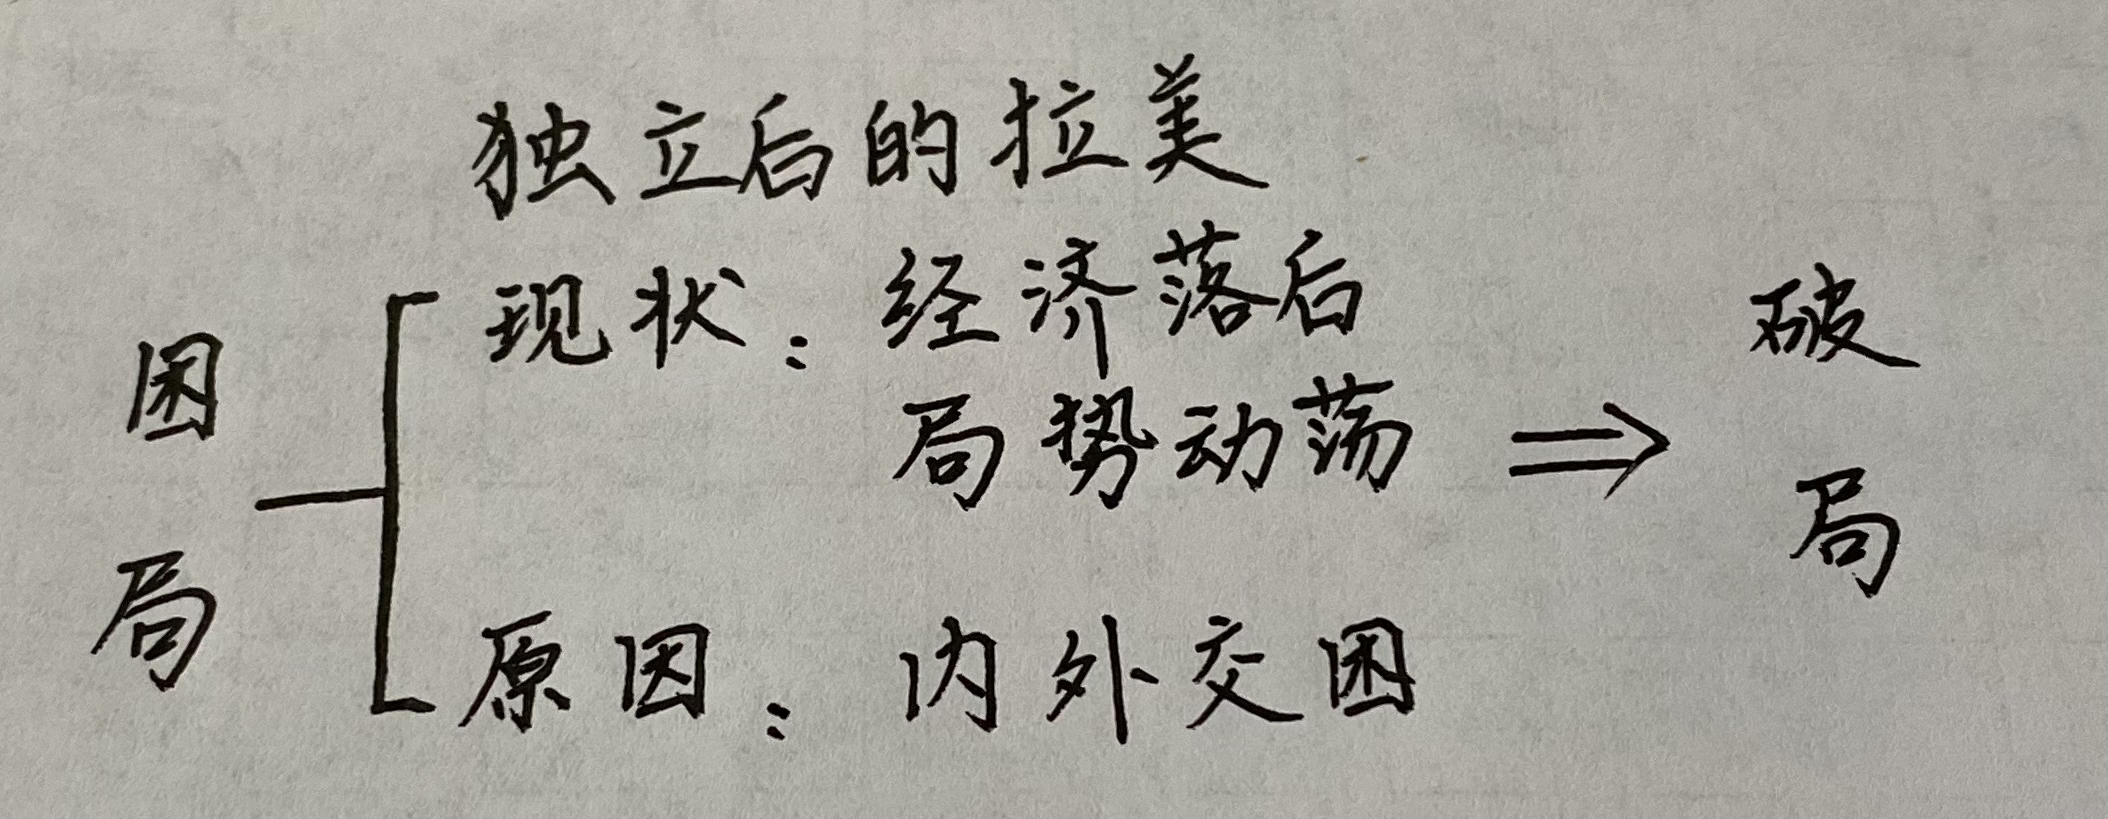 独立后的拉美
困局
现状：经济落后
局势动荡
原因：内外交困
破局